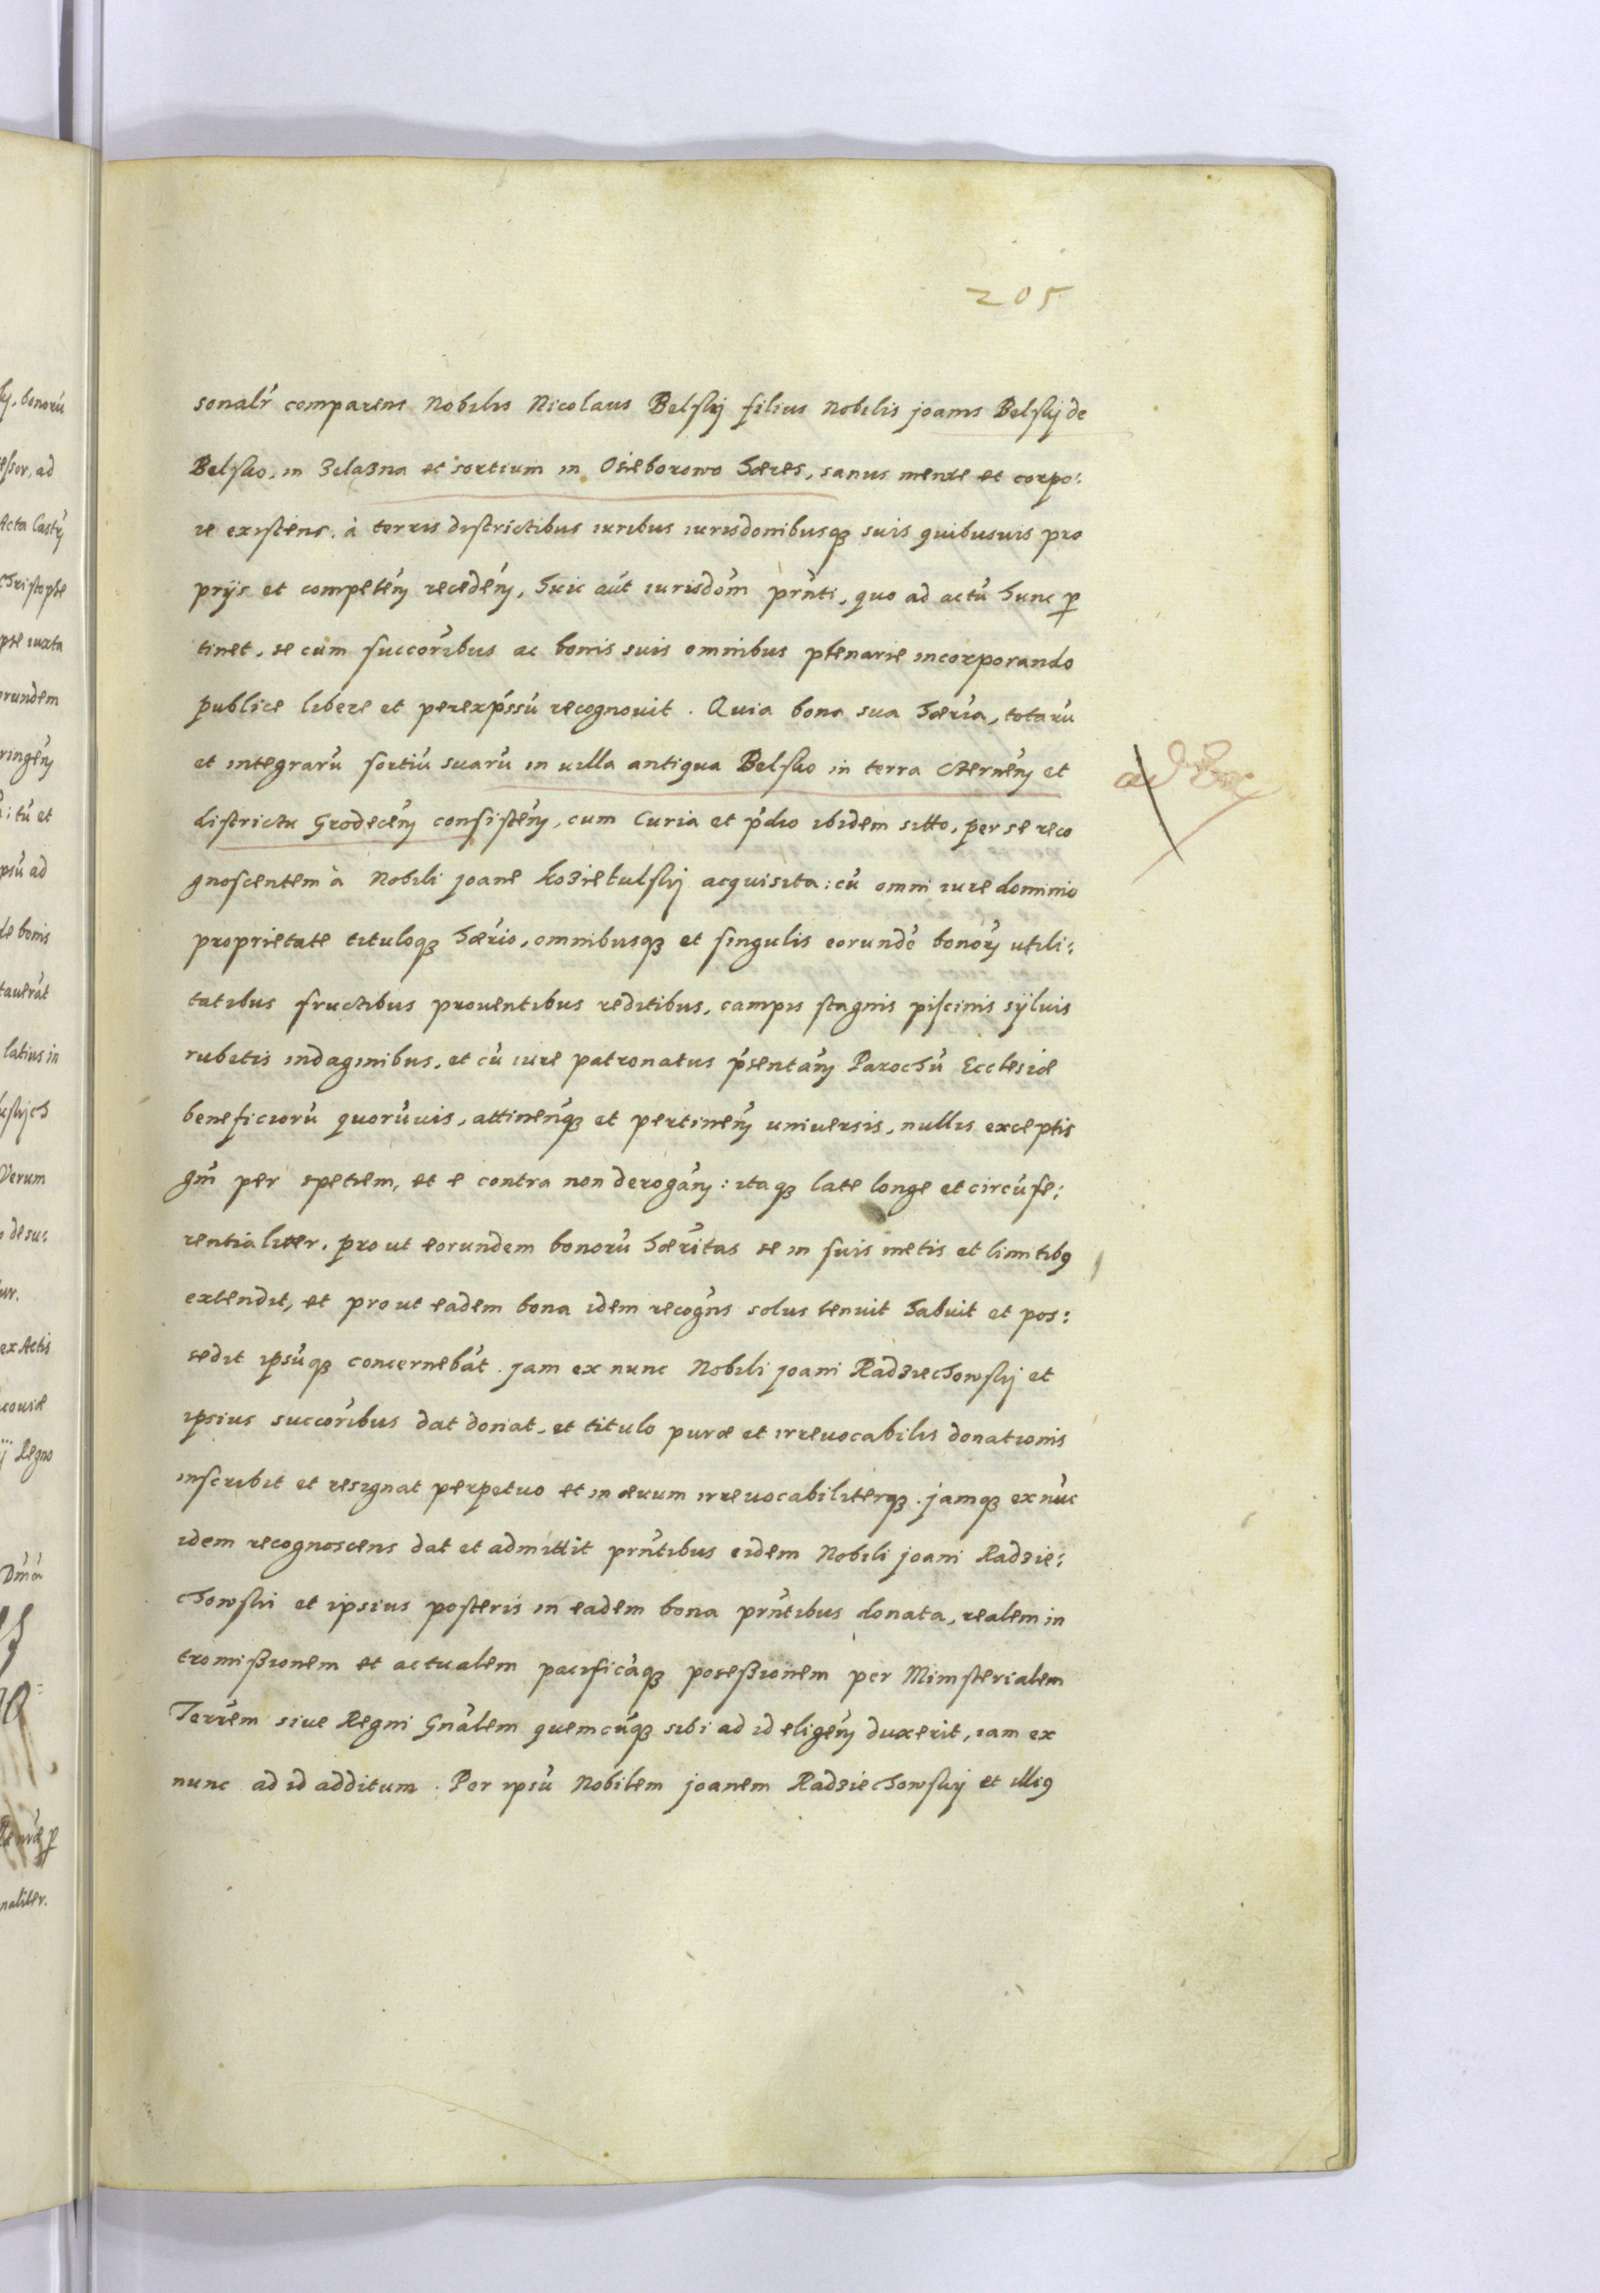 205
sonalr̃ comparens Nobilis Nicolaus Belskj filius Nobilis joanis Belskj de
Belsko, in Zelazna et sortium in Osieborowo hæres, sanus mente et corpo:
re existens. à terris districtibus iuribus iurisdonibusq3 suis quibusuis pro
prijs et competeñ recedeñ, huic aũt iurisdom̃ prñti, quo ad actũ hunc p
tinet, se cum succorĩbus ac bonis suis omnibus plenarie incorporando
publice libere et perexpssũ recognouit. Quia bona sua hærĩa, totarũ
et integrarũ sortiũ suarũ in uilla antiqua Belsko in terra Czerneñ et
districtu Grodeceñ consisteñ, cum Curia et p̃dio ibidem sitto, per se reco
gnoscentem à Nobili joane Kozietulskj acquisita: cũ omni iure dominio
proprietate tituloq3 hærĩo, omnibusq3 et singulis eorundẽ bonorỹ utili:
tatibus fructibus prouentibus reditibus, campis stagnis piscinis sÿluis
rubetis indaginibus, et cũ iure patronatus p̃sentañ Parochũ Ecclesiæ
beneficiorũ quorũuis, attineñq3 et pertineñ uniuersis, nullis exceptis
gm̃ per spetiem, et e contra non derogañ: itaq3 late longe et circũfe:
rentialiter. prout eorundem bonorũ hærĩtas se in suis metis et limitibꝯ
extendit, et prout eadem bona idem recogñs solus tenuit habuit et pos:
sedit ipsũq3 concernebãt. jam ex nunc Nobili joani Radziechowskj et
ipsius succorĩbus dat donat, et titulo puræ et irreuocabilis donationis
inscribit et resignat perpetuo et in æuum irreuocabiliterq3. jamq3 ex nũc
idem recognoscens dat et admittit prñtibus eidem Nobili joani Radzie:
chowski et ipsius posteris in eadem bona prñtibus donata, realem in
tromißionem et actualem pacificãq3 poseßionem per Ministerialem
Terrẽm siue Regni Gnãlem quemcũq3 sibi ad id eligeñ duxerit, iam ex
nunc ad id additum. Per ipsũ Nobilem joanem Radziechowskj et illiꝯ